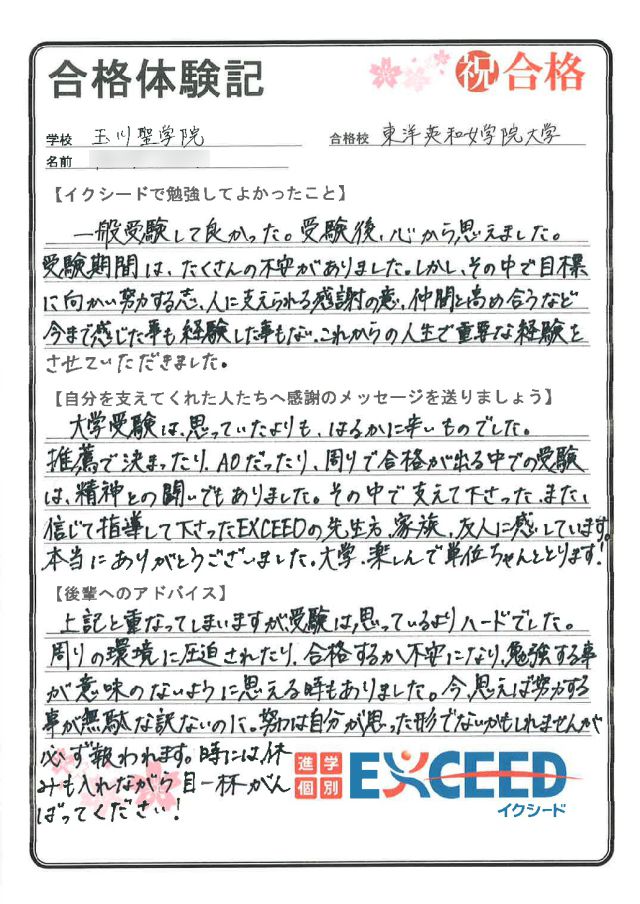 合格体験記
祝 合格
学校 玉川聖学院
合格校 東洋英和女学院大学
名前
【イクシードで勉強してよかったこと】
一般受験して良かった。受験後、心から思えました。
受験期間は、たくさんの不安がありました。しかし、その中で目標
に向かい努力する志、人に支えられる感謝の意、仲間と高め合うなど
今まで感じた事も経験した事もない、これからの人生で重要な経験を
させていただきました。
【自分を支えてくれた人たちへ感謝のメッセージを送りましょう】
大学受験は、思っていたよりも、はるかに辛いものでした。
推薦で決まったり、AOだったり、周りで合格が出る中での受験
は、精神との闘いでもありました。その中で支えて下さった、また、
信じて指導して下さったEXCEEDの先生方、家族、友人に感しています。
本当にありがとうございました。大学、楽しんで単位ちゃんととります!
【後輩へのアドバイス】
上記と重なってしまいますが、受験は、思っているよりハードでした。
周りの環境に圧迫されたり、合格するか不安になり、勉強する事
が意味のないように思える時もありました。今、思えば努力する
事が無駄な訳ないのに。努力は自分が思った形でないかもしれませんが
必ず報われます。時には休
みも入れながら目一杯がん
ばってください!
進学
個別
EXCEED
イクシード